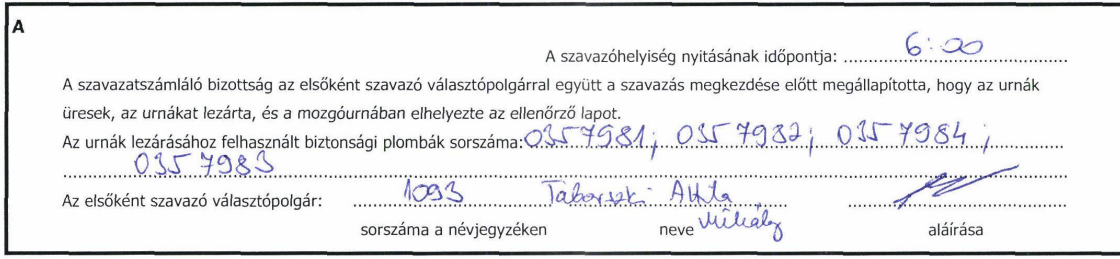 A
A szavazóhelyiség nyitásának időpontja: 6:00
A szavazatszámláló bizottság az elsőként szavazó választópolgárral együtt a szavazás megkezdése előtt megállapította, hogy az urnák
üresek, az urnákat lezárta, és a mozgóurnában elhelyezte az ellenőrző lapot.
Az urnák lezárásához felhasznált biztonsági plombák sorszáma: 0357981; 0357982; 0357984;
0357983
Az elsőként szavazó választópolgár: 1093 Taborszki Attila
Mihály
sorszáma a névjegyzéken neve aláírása